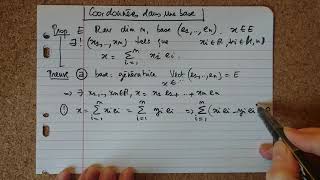 Coordonnées dans une base
Prop. E R ev dim n, base (e1,..,en). x∈E
∃! (x1,..,xn) tels que xi∈R, ∀i∈[1,n]
x = ∑_{i=1}^{n} xi ei
Preuve ∃ base: génératrice Vect(e1,..,en) = E
x∈
⇒ ∃ x1,..,xn∈R, x = x1 e1 + .. + xn en
! x = ∑_{i=1}^{n} xi ei = ∑_{i=1}^{n} yi ei ⇒ ∑_{i=1}^{n} (xi ei - yi ei)